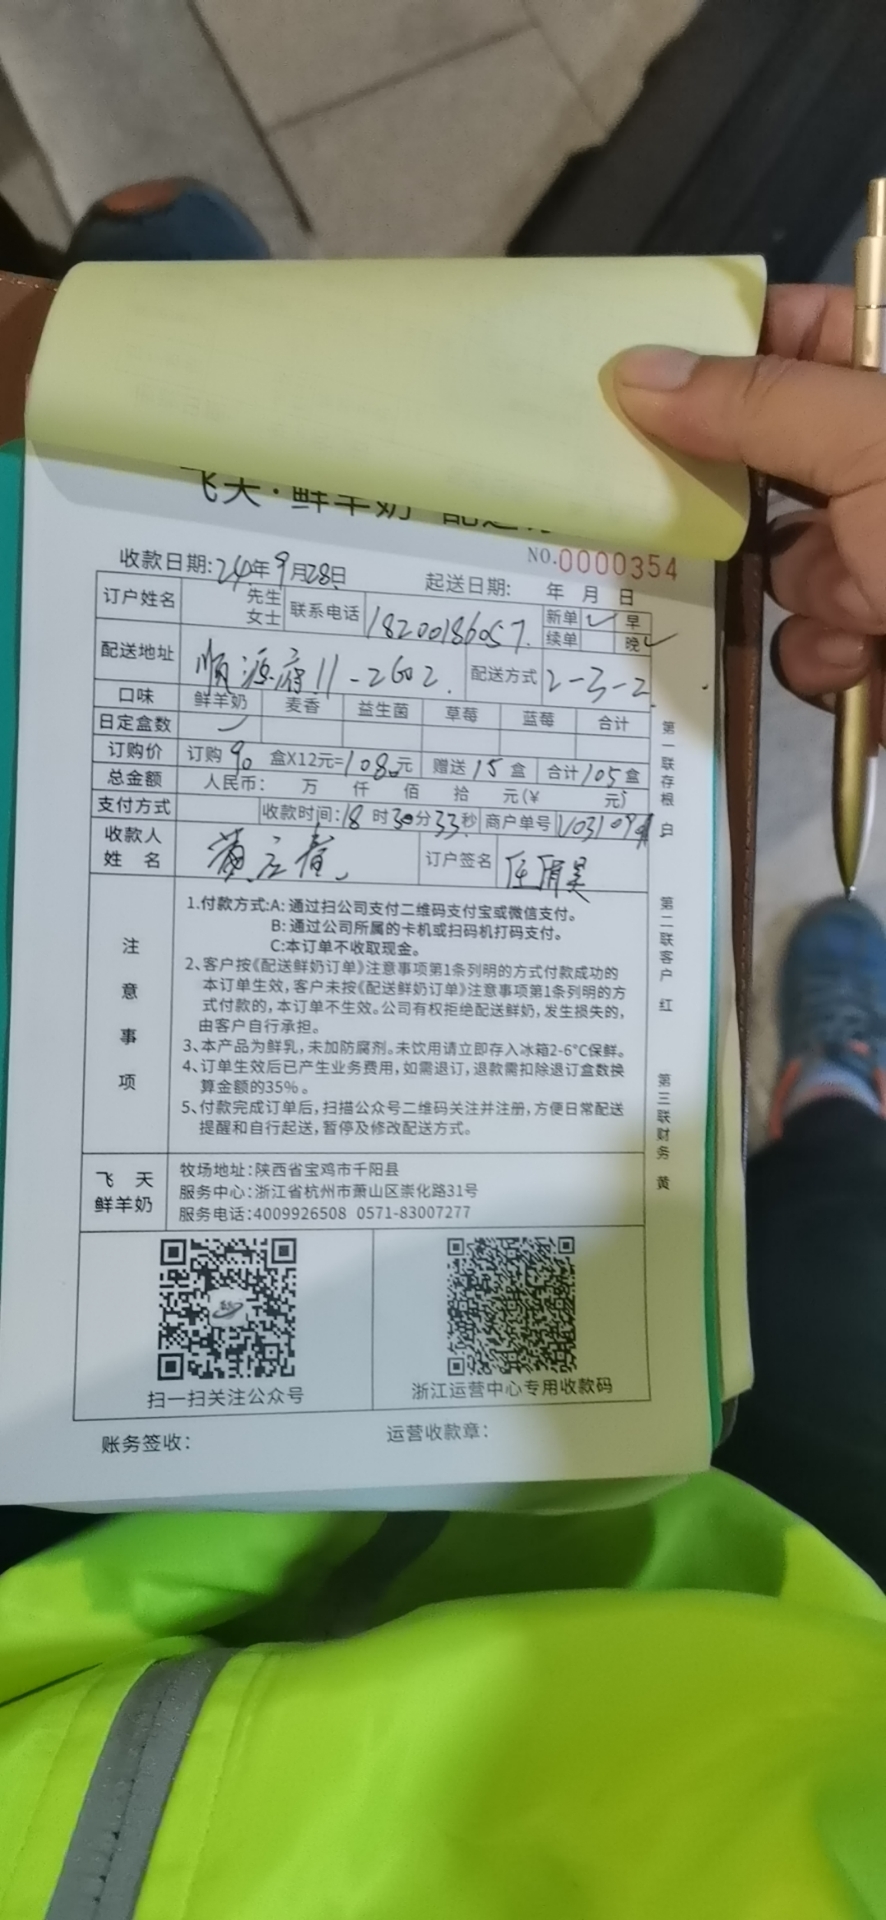 飞天·鲜羊奶 配送订
NO.0000354
收款日期:24年9月28日 起送日期: 年 月 日
订户姓名 先生 女士 联系电话 18200186057. 新单 ✓ 早 续单 晚 ✓
配送地址 顺源府11-2602. 配送方式 2-3-2
口味 鲜羊奶 麦香 益生菌 草莓 蓝莓 合计
日定盒数
订购价 订购90盒X12元=1080元 赠送15盒 合计105盒
总金额 人民币: 万 仟 佰 拾 元(¥ 元)
支付方式 收款时间:18时30分33秒 商户单号
收款人姓名 订户签名
注意事项
1.付款方式:A: 通过扫公司支付二维码支付宝或微信支付。
B: 通过公司所属的卡机或扫码机打码支付。
C:本订单不收取现金。
2、客户按《配送鲜奶订单》注意事项第1条列明的方式付款成功的
本订单生效,客户未按《配送鲜奶订单》注意事项第1条列明的方
式付款的,本订单不生效。公司有权拒绝配送鲜奶,发生损失的,
由客户自行承担。
3、本产品为鲜乳,未加防腐剂。未饮用请立即存入冰箱2-6°C保鲜。
4、订单生效后已产生业务费用,如需退订,退款需扣除退订盒数换
算金额的35%。
5、付款完成订单后,扫描公众号二维码关注并注册,方便日常配送
提醒和自行起送,暂停及修改配送方式。
飞天
鲜羊奶
牧场地址:陕西省宝鸡市千阳县
服务中心:浙江省杭州市萧山区崇化路31号
服务电话:4009926508 0571-83007277
扫一扫关注公众号
浙江运营中心专用收款码
账务签收: 运营收款章:
第一联存根 白
第二联客户 红
第三联财务 黄